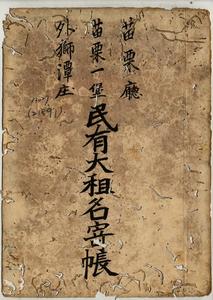 苗栗廳
苗栗一堡
外獅潭庄
民有大租名寄帳